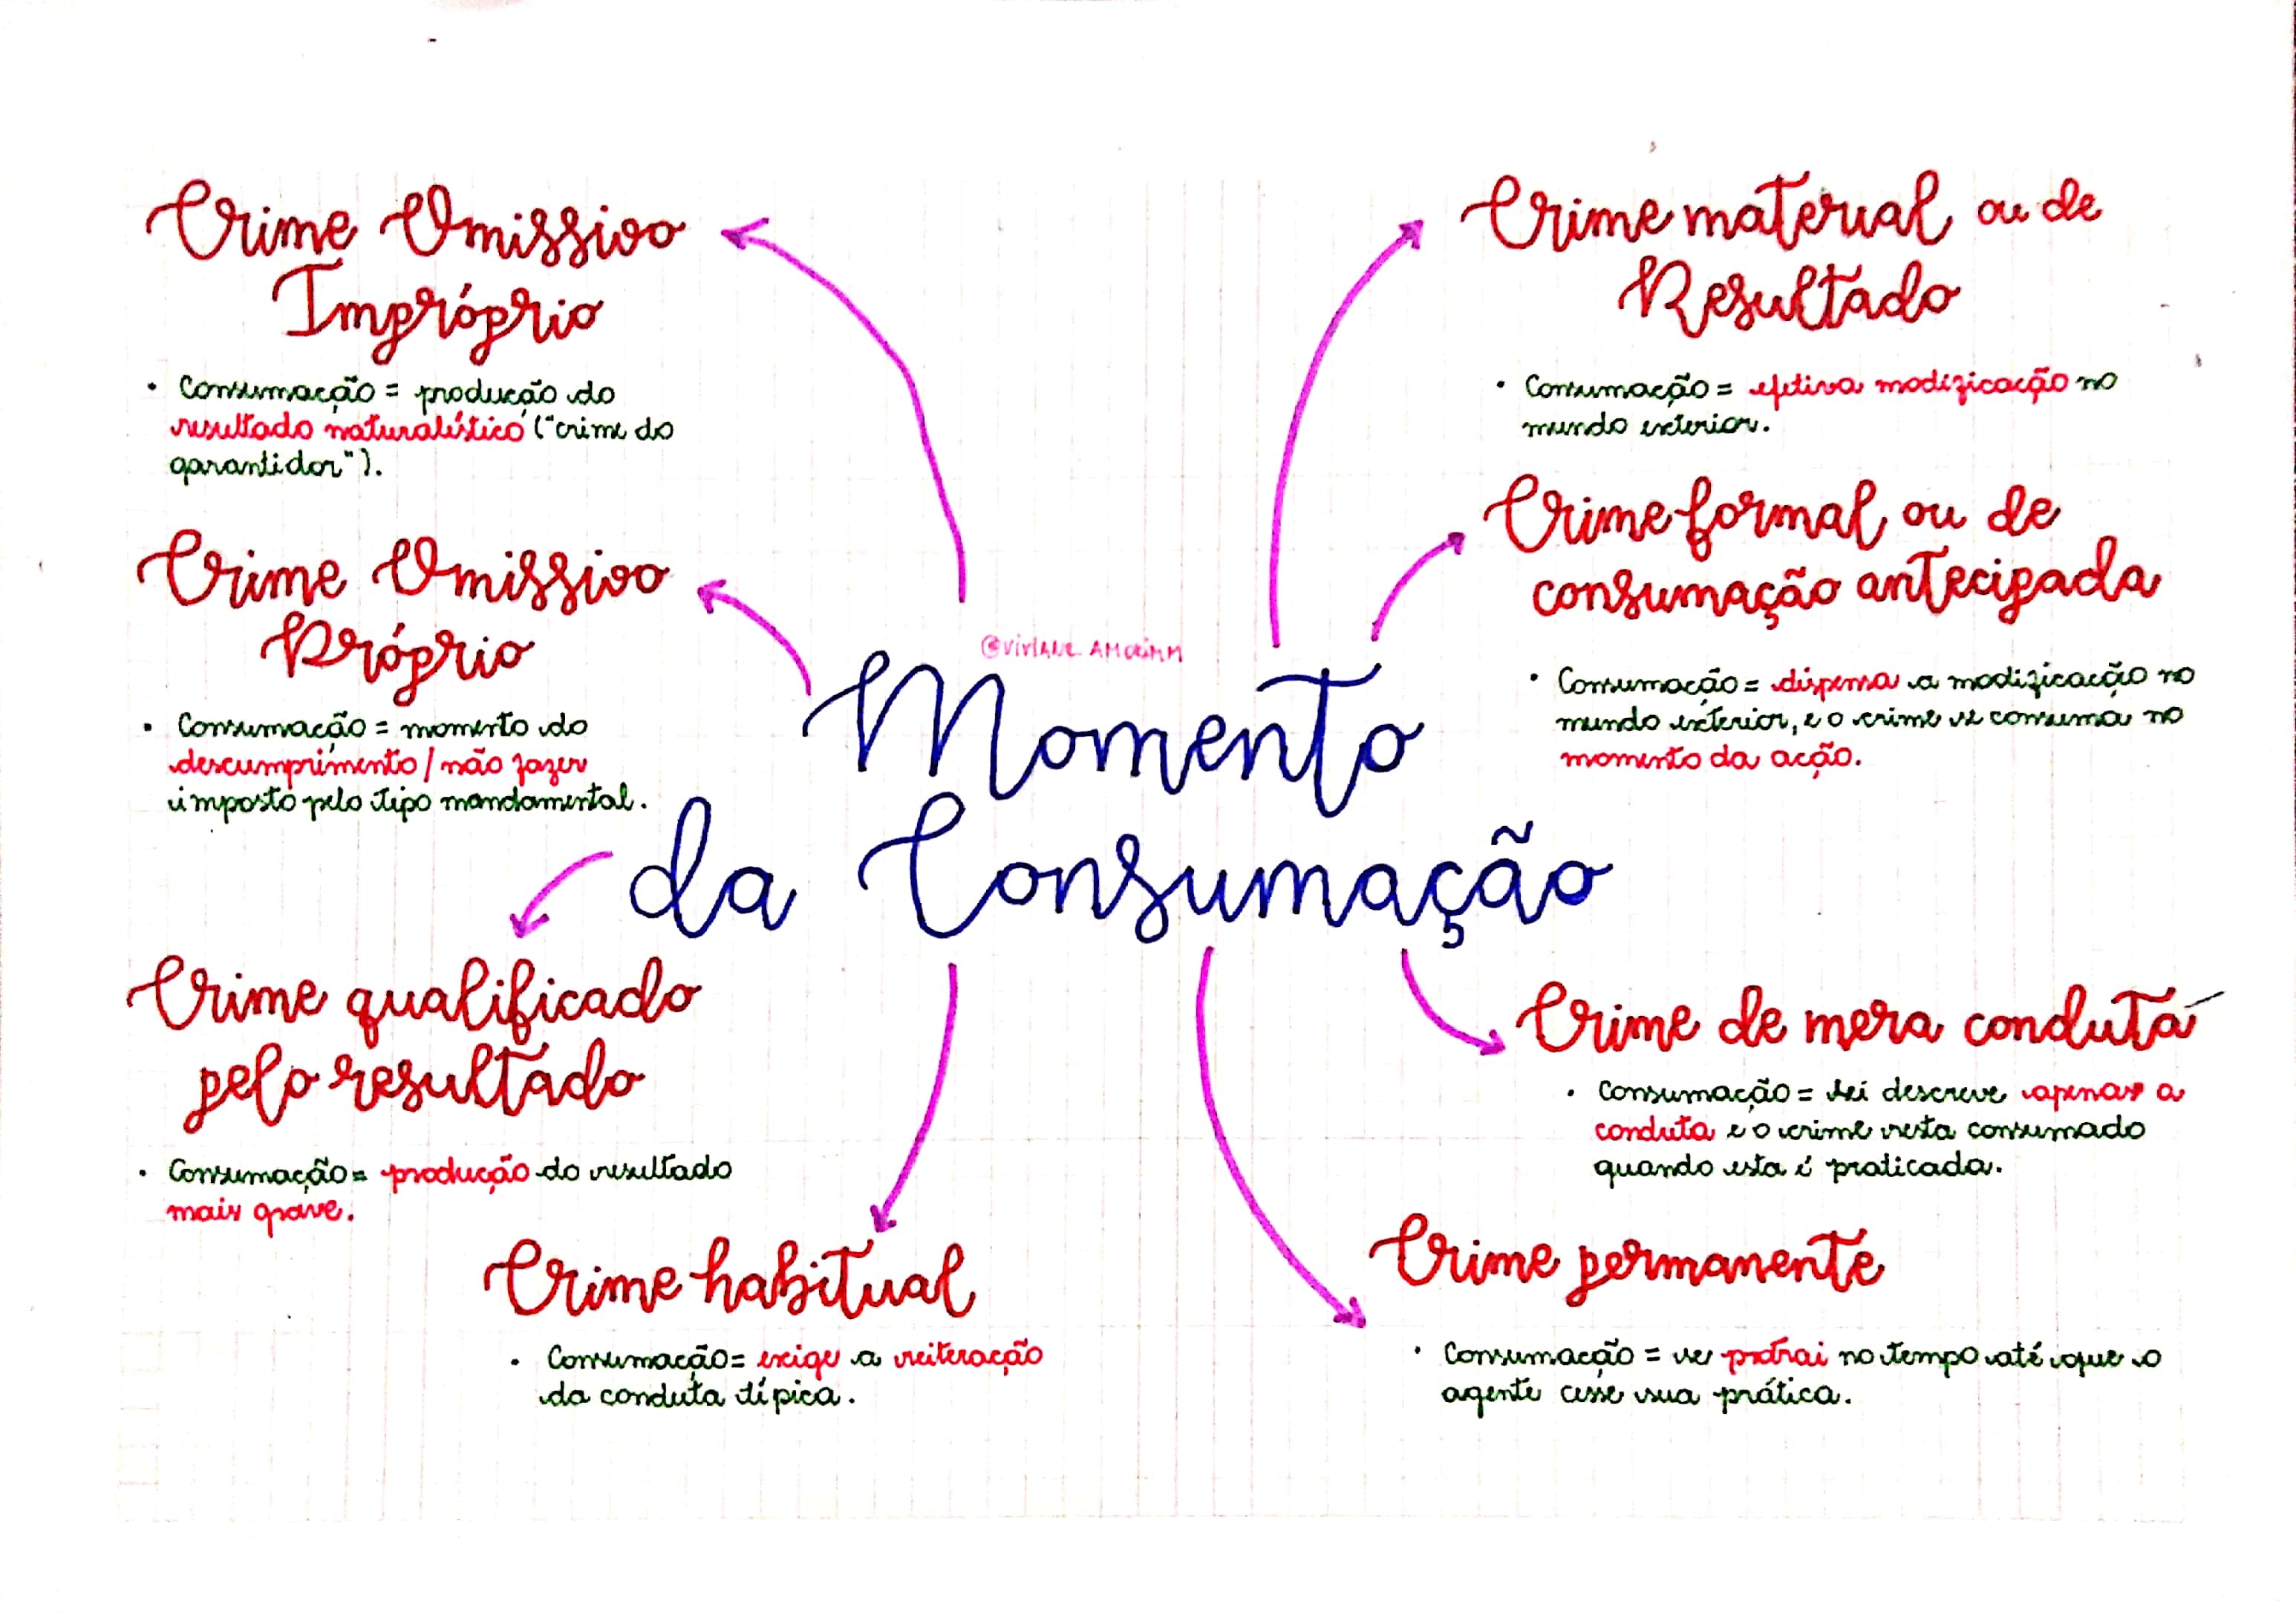 Crime Omissivo
Impróprio
• Consumação = produção do
resultado naturalístico ("crime do
garantidor").
Crime Omissivo
Próprio
• Consumação = momento do
descumprimento / não fazer
imposto pelo tipo mandamental.
Crime qualificado
pelo resultado
• Consumação = produção do resultado
mais grave.
Crime habitual
• Consumação = exige a reiteração
da conduta típica.
@viviane.amorimm
Momento
da Consumação
Crime material ou de
Resultado
• Consumação = efetiva modificação no
mundo exterior.
Crime formal ou de
consumação antecipada
• Consumação = dispensa a modificação no
mundo exterior, e o crime se consuma no
momento da ação.
Crime de mera conduta
• Consumação = lei descreve apenas a
conduta e o crime resta consumado
quando esta é praticada.
Crime permanente
• Consumação = se protrai no tempo até que o
agente cesse sua prática.